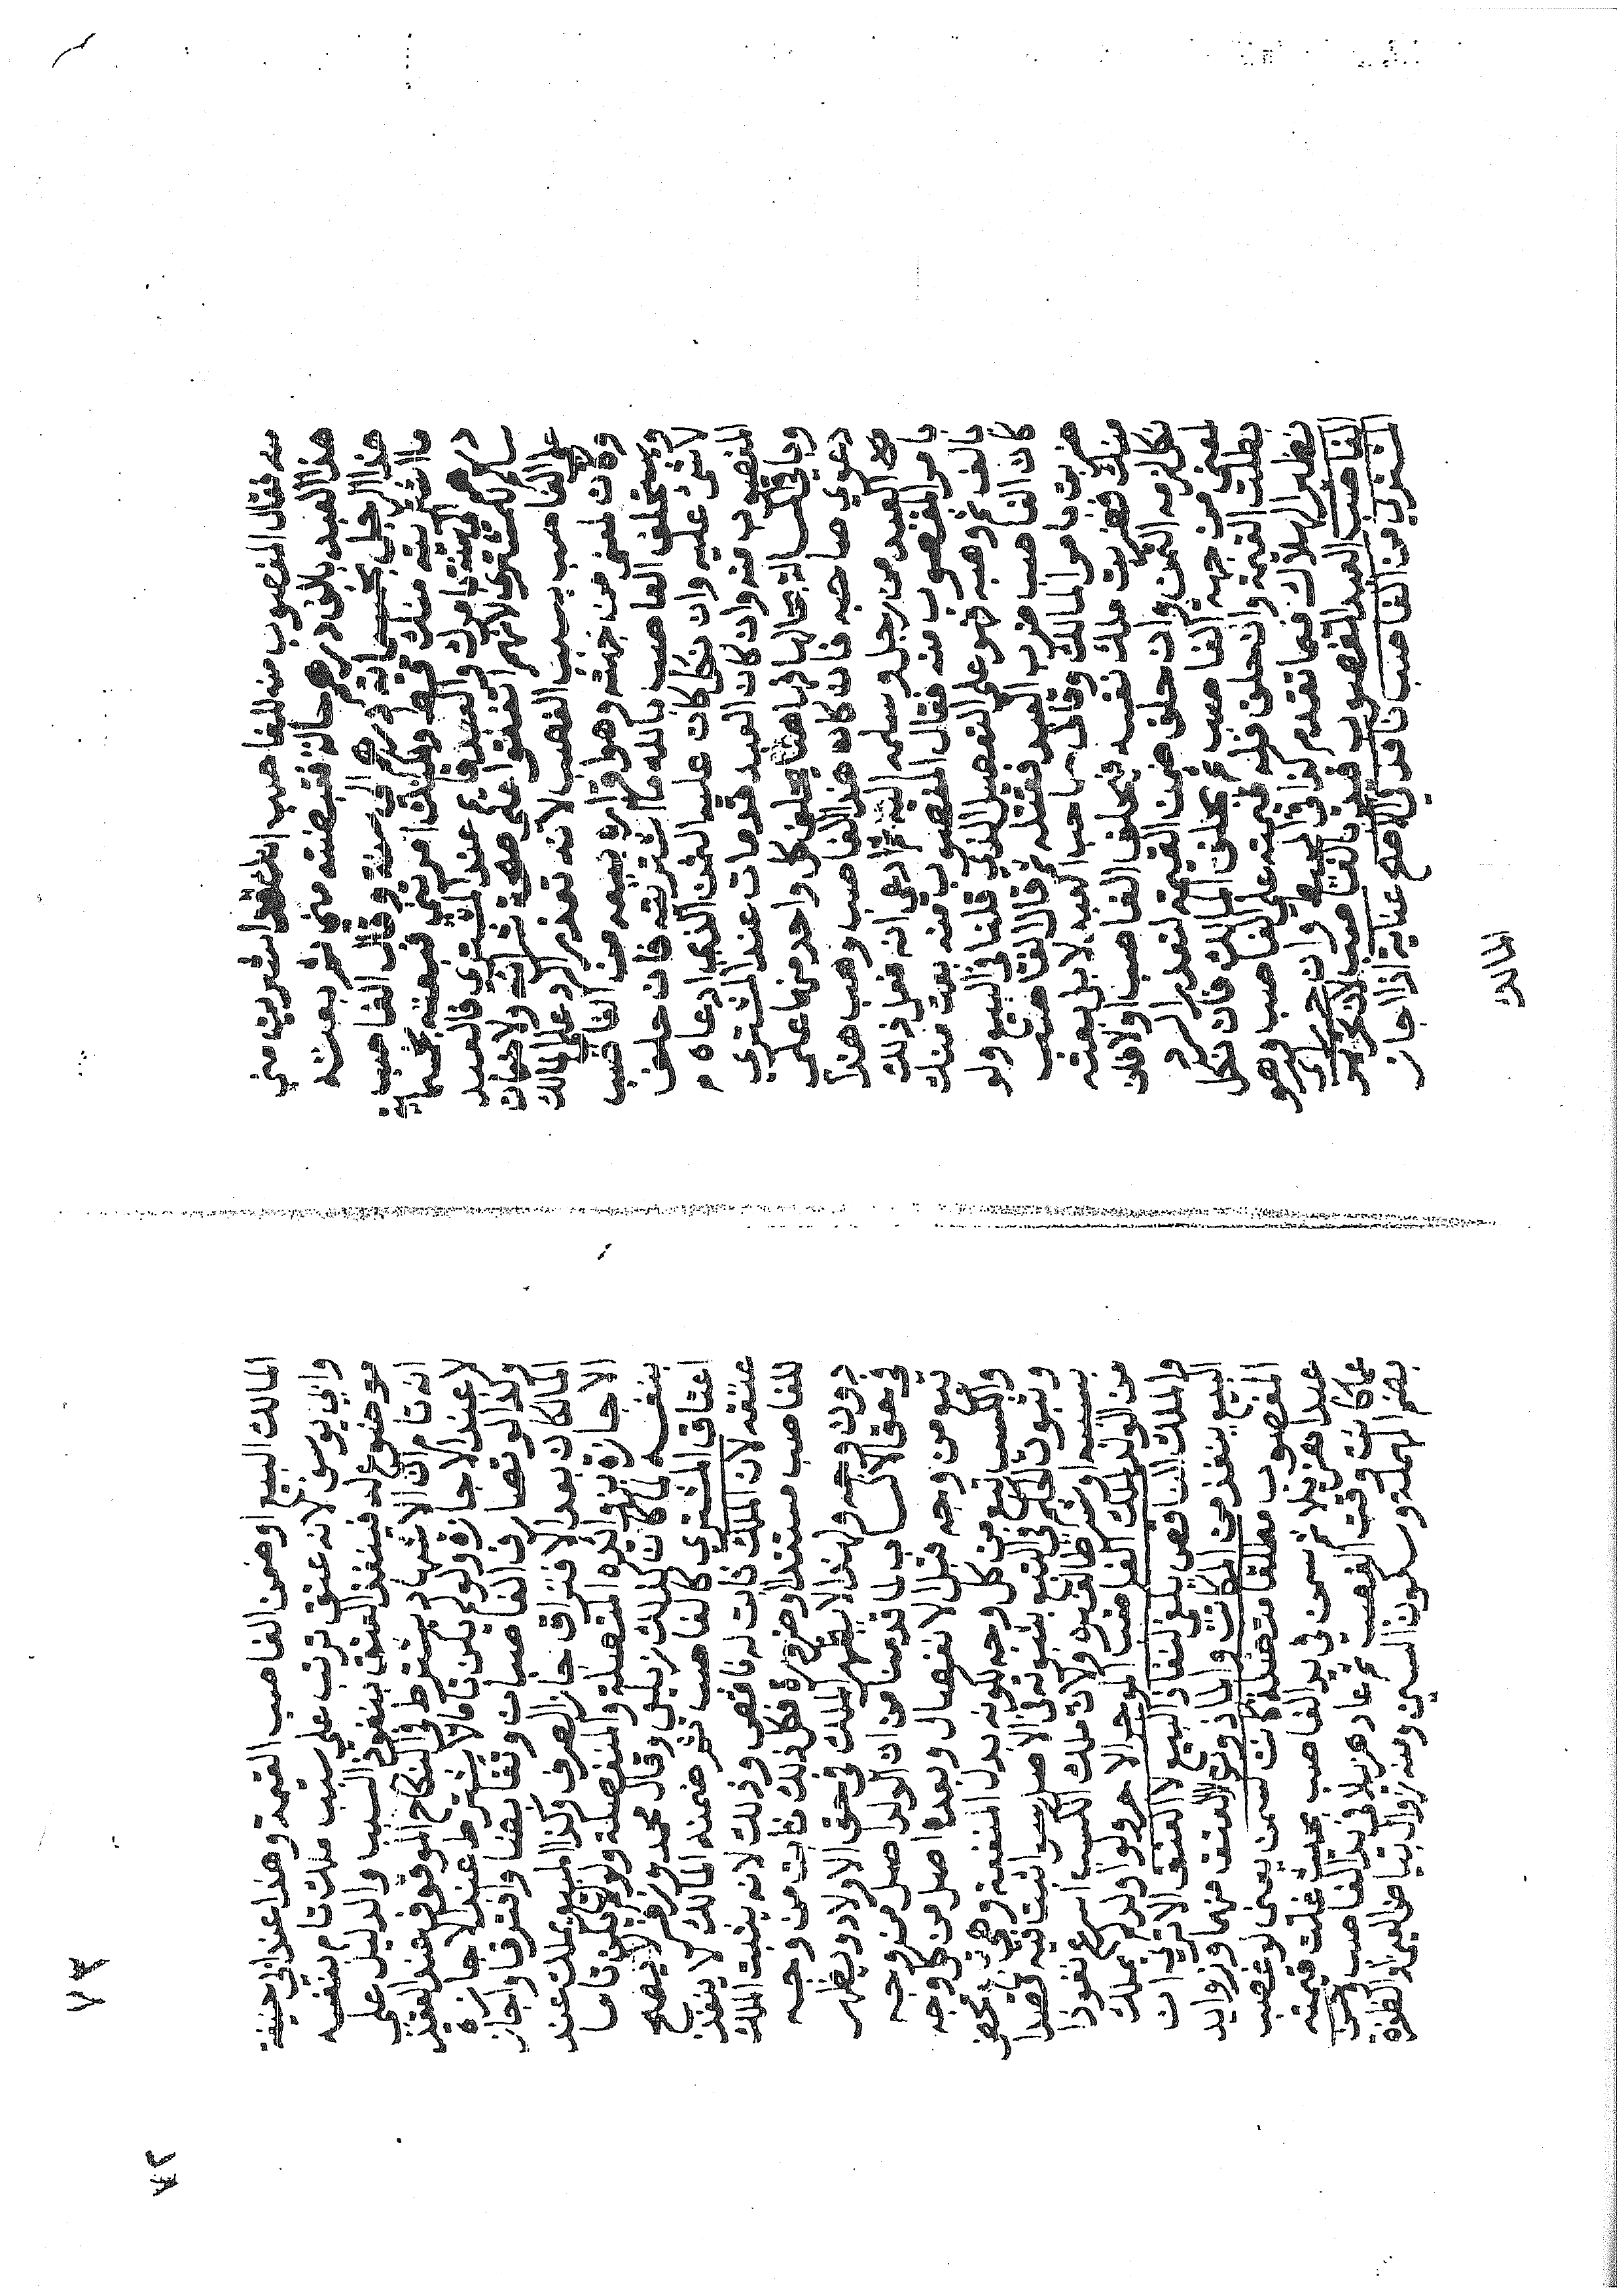 منه فقال المغصوب منه للغاصب انك اشتريت مني
هذا العبد بالف درهم حالة فقبضته مني ثم بعته
هذا الرجل بخمسمائة درهم الى سنة وقال الغاصب
ما اشتريته منك قط ولكنك امرتني فبعته بخمسمائة
درهم الى سنة بامرك والعبد قائم عند المشتري فالعبد
سالم للمشتري لانهم اتفقوا على صحة شرائه ولا ضمان
على الغاصب بسبب الغصب لانه تعذر الرد على المالك
لمعنى من جهته وهو اقراره ببيعه من الغاصب
ويستحلف الغاصب بالله ما اشتريته فان حلف
لا شيء عليه وان نكل كان عليه الثمن الذي ادعاه
المغصوب منه وان كان العبد قد مات عند المشتري
وباقي المسألة بحالها فهاهنا يحلف كل واحد منهما على
دعوى صاحبه فان كان هذا الغاصب وهب هذا
العبد من رجل وسلمه اليه ثم ادعى انه فعل ذلك
بامر المغصوب منه فقال المغصوب منه بعت منك
بالف ثم وهبته فهو على التفصيل الذي قلنا في البيع ولو
كان الغاصب ضرب العبد فقتله ثم قال الغاصب
ضربت بامر المالك وقال صاحب العبد لا بل بعته
منك فضربت ملك نفسك فيحلف الغاصب اولا فان
نكل لزمه الثمن وان حلف ضمن القيمة لتعذر الرد
لمعنى من جهة الغاصب ثم يحلف المالك فان نكل
بطلت القيمة وان حلف فله قيمته على الغاصب وهو
نظير الهلاك فيما تقدم كذا في المحيط وان حرر اي
الغاصب العبد المغصوب قيد بالغاصب لان تحرير
المشتري من الغاصب نافذ في الاصح عناية اذا اجاز
المالك
المالك البيع او ضمن الغاصب القيمة وهذا عند ابي حنيفة
وابي يوسف لانه عتق ترتب على سبب ملك تام بنفسه
موضوع له فينفذ العتق بنفوذ السبب والدليل على
انه تام ان الاشهاد يشترط في النكاح الموقوف عند العقد
لا عند الاجازة ولو لم يكن تاما لاشترط عند الاجازة
وكذا لو تصارف الغاصبان وتقابضا وافترقا واجاز
المالكان بعد الافتراق جاز الصرف وكذا المبيع يملك عند
الاجازة بزوائده المتصلة والمنفصلة ولو لم يكن تاما
بنفسه لما كان كذلك زيلعي وقال محمد وزفر لا يصح
اعتاق المشتري كالغاصب ثم ضمنه المالك لا ينفذ
عتقه لان الملك الثابت له ناقص وذلك لانه يثبت الملك
للغاصب مستندا او ضرورة فكل ذلك ثابت من وجه
دون وجه ولهذا لا يظهر الملك في حق الاولاد ويظهر
في حق الاكساب لما قدمنا من ان الولد اصل من وجه
تبع من وجه قبل الانفصال وبعده اصل من كل وجه
والكسب تبع من كل وجه لكونه بدل المنفعة وهي تبع محض
وثبوت الحكم في التبع بثبوته في الاصل سواء ثبت فيه قصدا
بسببه او شرطا لغيره ولان ملك الكسب اسرع نفوذا
من الولد لملك الغاصب الموجر الاجر والولد لم يملك
والملك الناقص يكفي لنفاذ البيع لا العتق الا ترى ان
البيع ينفذ من المكاتب والماذون لا العتق منهما وزوايد
المغصوب مطلقا متصلة كانت كسمن يعني لو غصب
عبدا هزيلا ثم سمن في يد الغاصب بحيث غلت قيمته
عما كانت وقت الغصب ثم عاد هزيلا في يد الغاصب وحسن
بضم المهملة وسكون السين ومنه زوال بياض العين او الطفرة